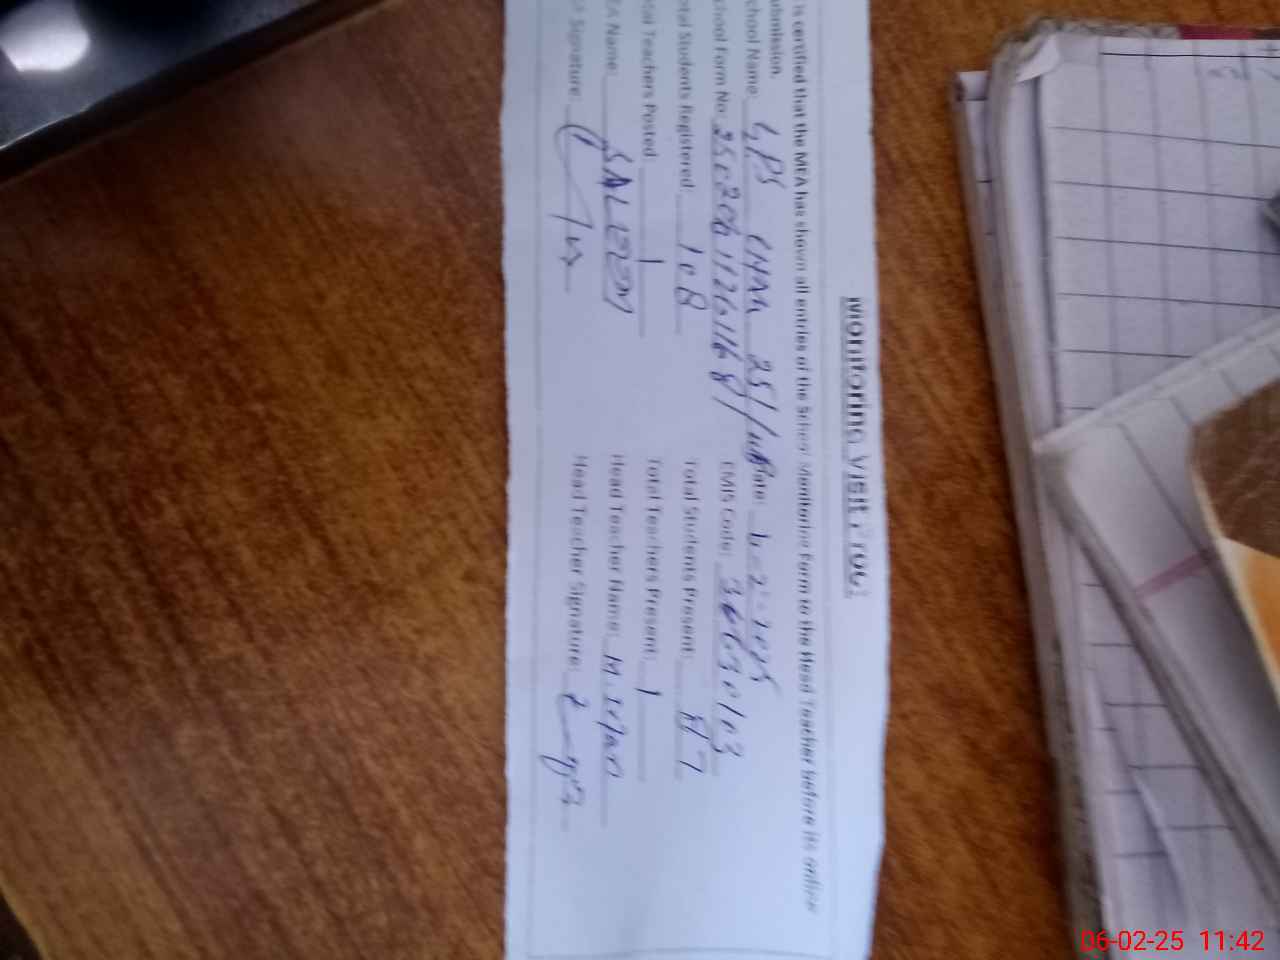 Monitoring Visit Proof
is certified that the MEA has shown all entries of the School Monitoring Form to the Head Teacher before its online
ubmission.
chool Name: GPS CHAK 25/ Date: 6-2-2025
chool Form No: EMIS Code: 36630103
otal Students Registered: 108 Total Students Present: 87
tal Teachers Posted 1 Total Teachers Present: 1
EA Name: SALEEM Head Teacher Name: M. Irfan
Signature: Head Teacher Signature:
06-02-25 11:42